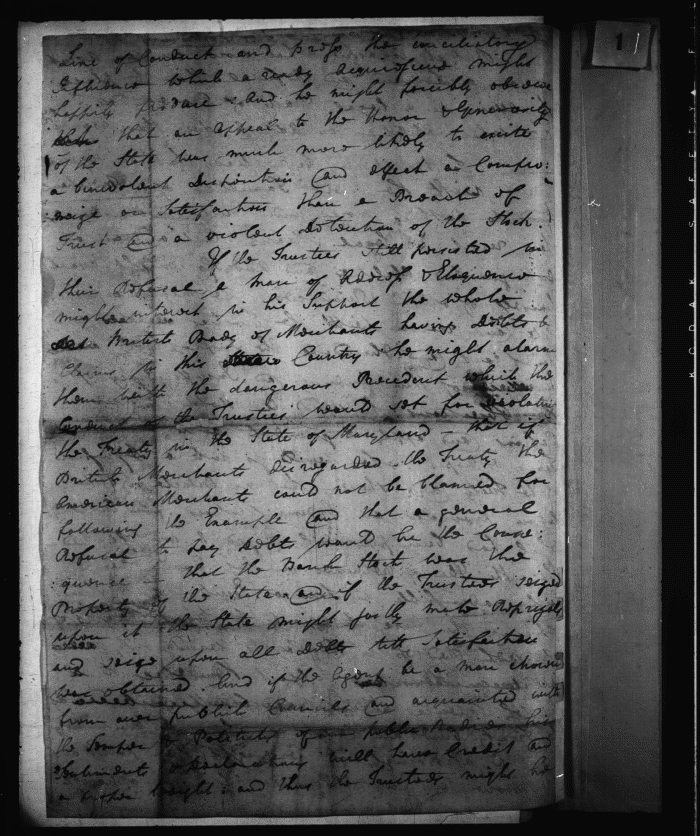 Line of Conduct and press the conciliatory
Influence which a ready acquiescence might
happily produce. And he might forcibly observe
that an appeal to the Honor & Generosity
of the State was much more likely to excite
a benevolent Disposition and effect a Compro:
mise or Satisfaction than a Breach of
Trust and a violent Detention of the Stock.
If the Trustees still persisted in
their Refusal a man of Address & Eloquence
might interest in his Support the whole
British Body of Merchants having Debts &
Claims in this Country & he might alarm
them with the dangerous Precedent which the
Conduct of the Trustees would set for violating
the Treaty in the State of Maryland – that if
British Merchants disregarded the Treaty the
American Merchants could not be blamed for
following the Example and that a general
Refusal to pay Debts would be the Conse:
:quence – that the Bank Stock was the
Property of the State and if the Trustees seized
upon it the State might justly make Reprizals
and seize upon all Debts till Satisfaction
was obtained. And if the Agent be a man chosen
from our publick Councils and acquainted with
the Temper & of our public his
Sentiments & Declarations will have Credit and
a proper weight: and thus the Trustees might be
1
KODAK SAFETY